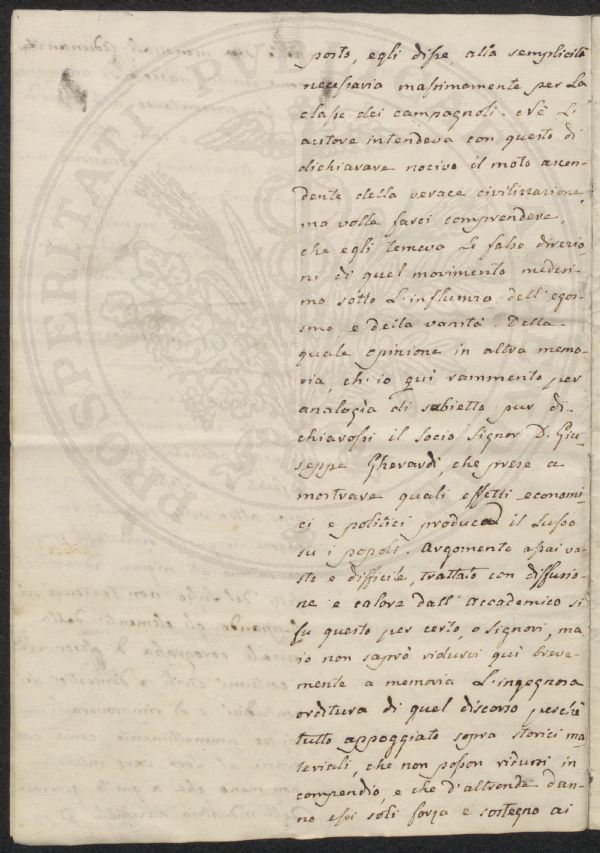 posto, egli disse, alla semplicità
necessaria massimamente per la
classe dei campagnoli. Nè l'
autore intendeva con questo di
dichiarare nocivo il moto ascen-
dente della verace civilizzazione,
ma volle farci comprendere,
che egli temeva le false direzio-
ni di quel movimento medesi-
mo sotto l'influenza dell'egoi-
smo, e della vanità. Della
quale opinione in altra memo-
ria, ch'io quì rammento per
analogìa di subietto pur di-
chiarossi il socio Signor D. Giu-
seppe Gherardi, che prese a
mostrare quali effetti economi-
ci e politici produca il Lusso
su i popoli. Argomento assai va-
sto e difficile, trattato con diffusio-
ne e calore dall'Accademico si
fu questo per certo, o Signori, ma
io non saprò ridurvi quì breve-
mente a memoria l'ingegnosa
orditura di quel discorso perchè
tutto appoggiato sopra storici ma-
teriali, che non posson ridursi in
compendio, e che d'altronde dan-
no essi soli forza e sostegno ai
PROSPERITATI PVB